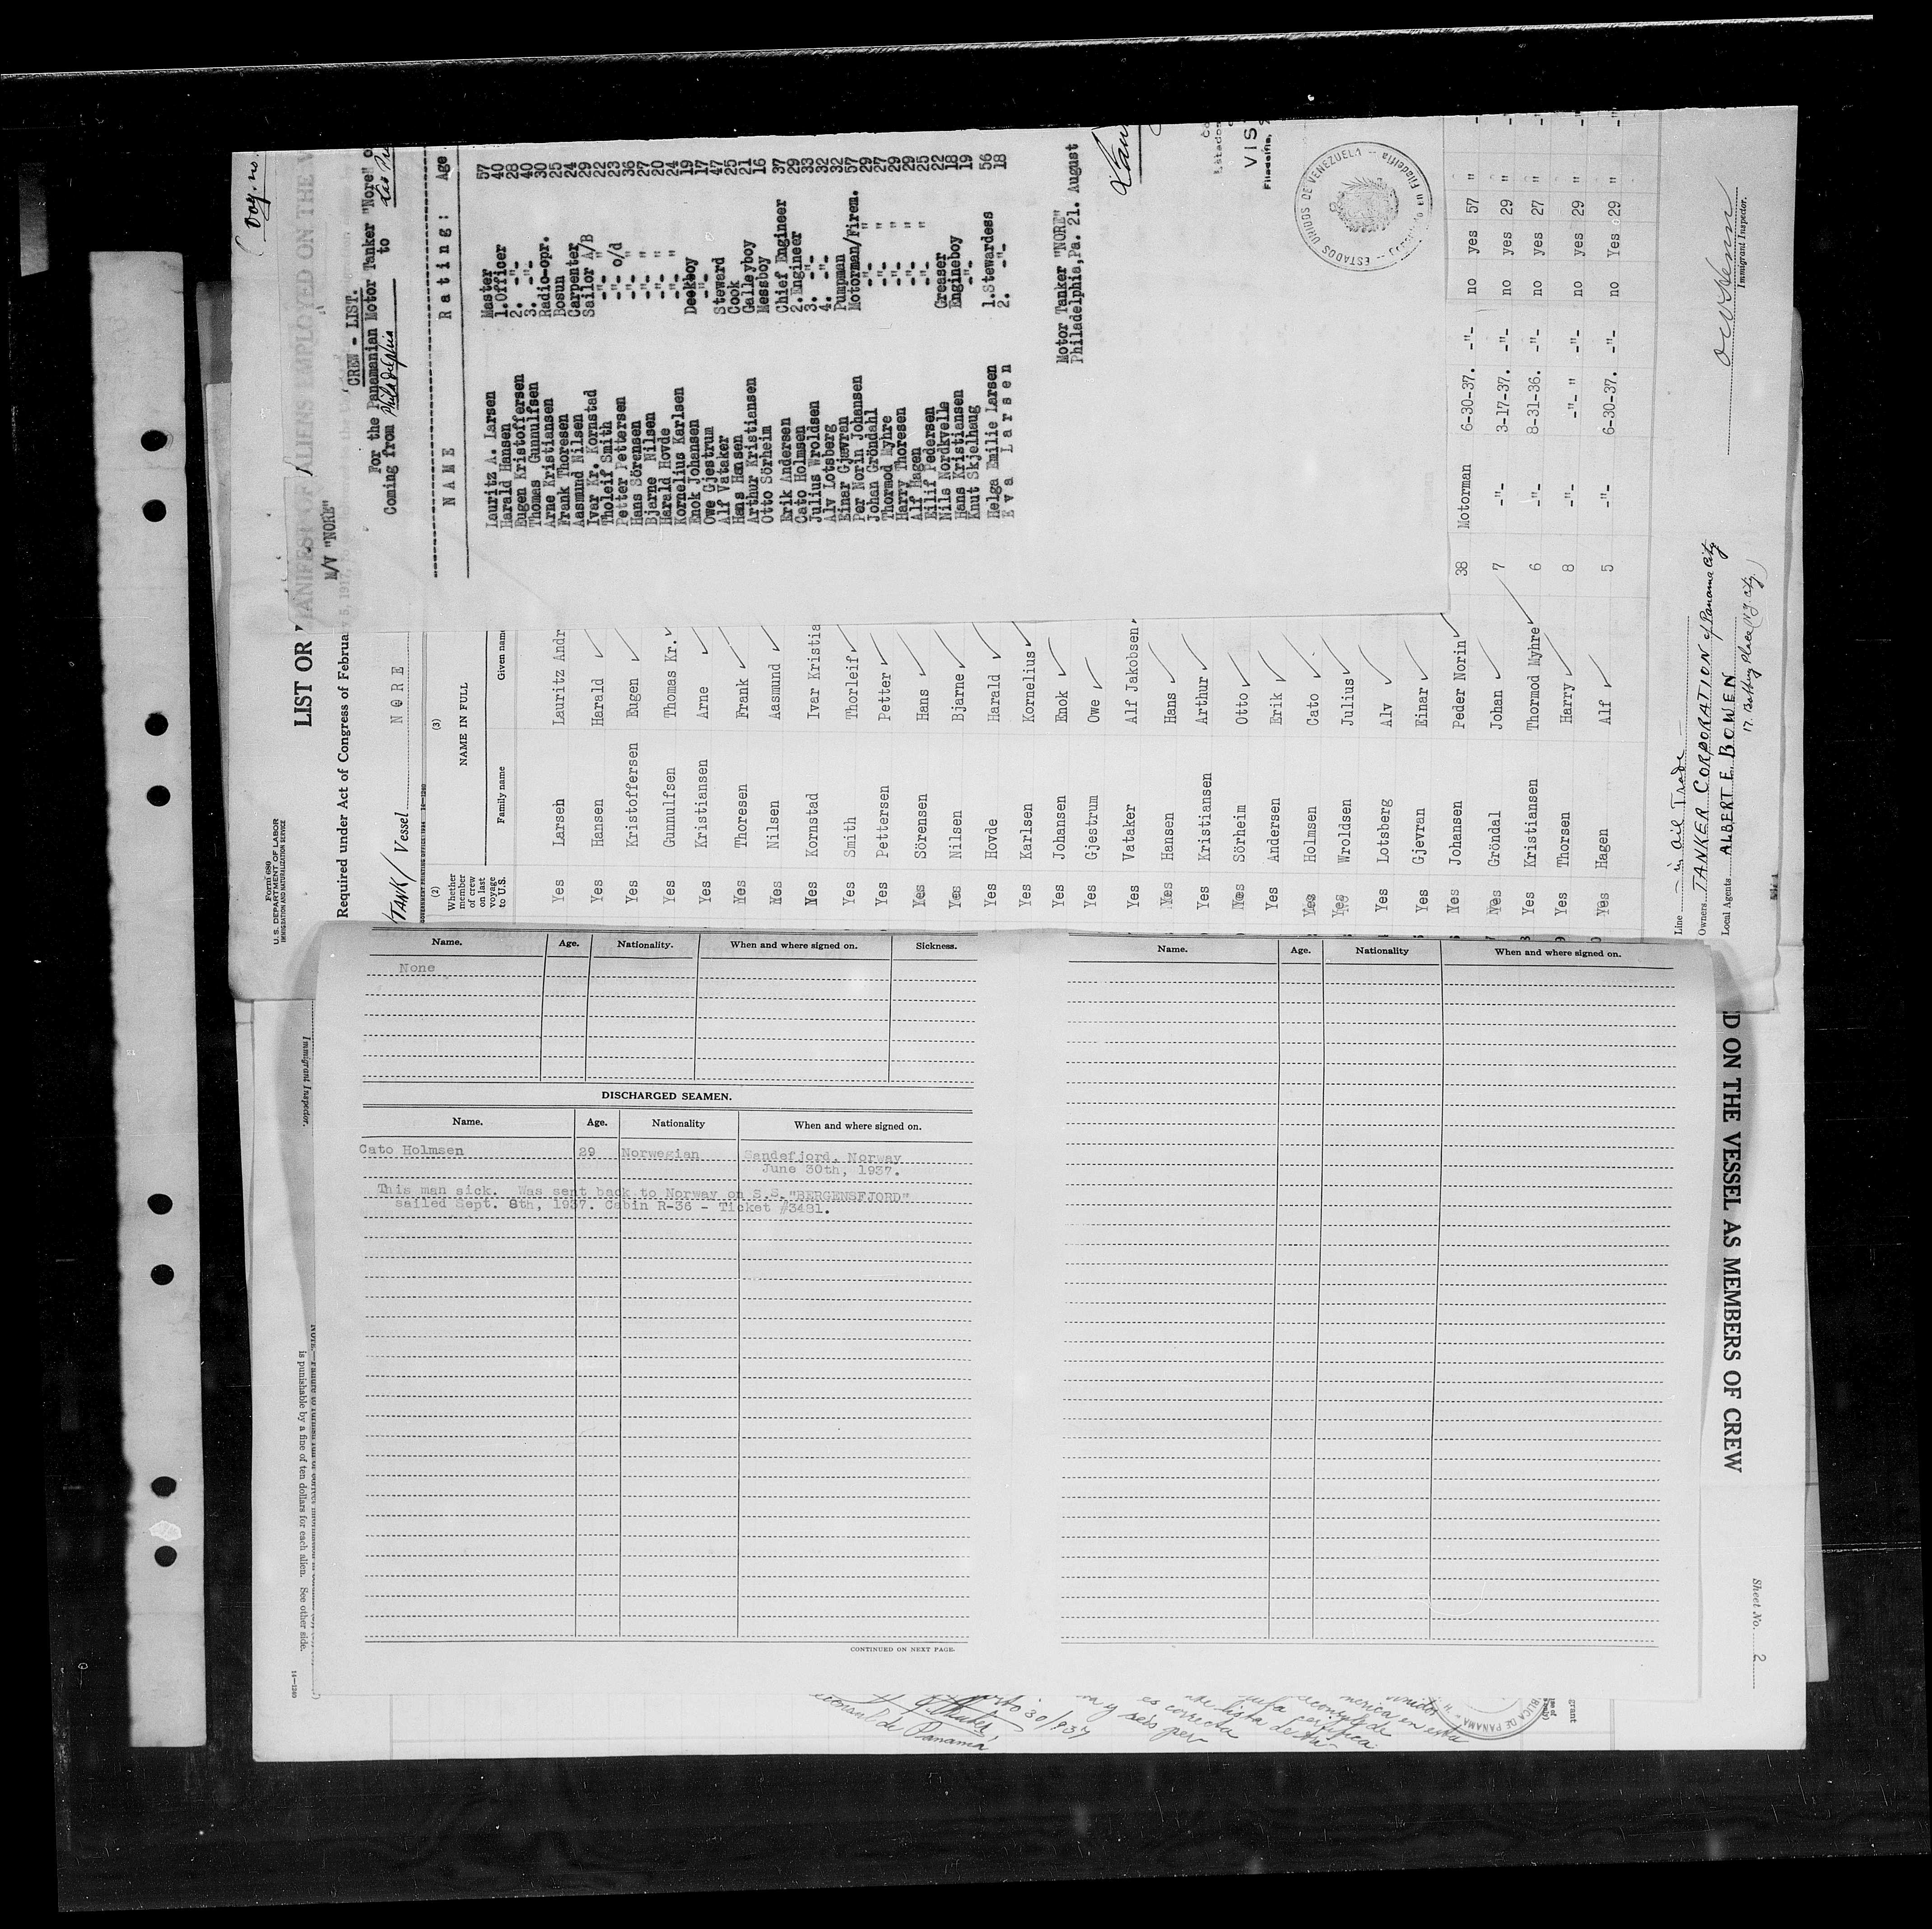 Voy. no.
CREW - LIST.
For the Panamanian Motor Tanker "Nore"
Coming from Philadelphia to
NAME Rating: Age
Lauritz A. Larsen Master 57
Harald Hansen 1.Officer 40
Eugen Kristoffersen 2. -"- 28
Thomas Gunnulfsen 3. -"- 40
Arne Kristiansen Radio-opr. 30
Frank Thoresen Bosun 25
Aasmund Nilsen Carpenter 24
Ivar Kr. Kornstad Sailor A/B 29
Tholeif Smith -"- " 22
Petter Pettersen -"- o/d 23
Hans Sörensen -"- " 36
Bjarne Nilsen -"- " 27
Harald Hovde -"- " 20
Kornelius Karlsen -"- " 24
Enok Johansen Deckboy 19
Owe Gjestrum -"- 17
Alf Vataker Steward 47
Hans Hansen Cook 25
Arthur Kristiansen Galleyboy 21
Otto Sörheim Messboy 16
Erik Andersen Chief Engineer 37
Cato Holmsen 2.Engineer 29
Julius Wroldsen 3. -"- 33
Alv Lotsberg 4. -"- 32
Einar Gjevran Pumpman 32
Per Norin Johansen Motorman/Firem. 57
Johan Gröndahl -"- " 29
Thormod Myhre -"- " 27
Harry Thoresen -"- " 29
Alf Hagen -"- " 29
Eilif Pedersen -"- " 25
Nils Nordkvelle Greaser 22
Hans Kristiansen Engineboy 18
Knut Skjelhaug -"- 19
Helga Emilie Larsen 1.Stewardess 56
Eva Larsen 2. -"- 18
Motor Tanker "NORE"
Philadelphia,Pa. 21. August
VIS
Filadelfia,
ESTADOS UNIDOS DE VENEZUELA
Form 680
U. S. DEPARTMENT OF LABOR
IMMIGRATION AND NATURALIZATION SERVICE
LIST OR MANIFEST OF ALIENS EMPLOYED ON THE V
M/V "NORE"
Required under Act of Congress of February 5, 1917,
TANK/ Vessel NORE
(2) (3)
Whether member of crew on last voyage to U.S. NAME IN FULL
Family name Given name
Yes Larsen Lauritz Andr
Yes Hansen Harald
Yes Kristoffersen Eugen
Yes Gunnulfsen Thomas Kr.
Yes Kristiansen Arne
Thoresen Frank
Nilsen Aasmund
Kornstad Ivar Kristia
Yes Smith Thorleif
Yes Pettersen Petter
Yes Sörensen Hans
Yes Nilsen Bjarne
Yes Hovde Harald
Yes Karlsen Kornelius
Yes Johansen Enok
Yes Gjestrum Owe
Yes Vataker Alf Jakobsen
Hansen Hans
Yes Kristiansen Arthur
Sörheim Otto
Yes Andersen Erik
Holmsen Cato
Wroldsen Julius
Yes Lotsberg Alv
Yes Gjevran Einar
Johansen Peder Norin 38 Motorman 6-30-37. -"- no yes 57 " -
Gröndal Johan 7 -"- 3-17-37. -"- no yes 29 " -"
Yes Kristiansen Thormod Myhre 6 -"- 8-31-36. -"- no yes 27 " -"
Yes Thorsen Harry 8 -"- -"- " -"- no yes 29 " -"
Hagen Alf 5 -"- 6-30-37. -"- no Yes 29 " -"
Line - in Oil Trade -
Owners TANKER CORPORATION of Panama City
Local Agents ALBERT E. BOWEN
17. Battery Place (N.Y. City.)
Immigrant Inspector.
Name. Age. Nationality. When and where signed on. Sickness.
None
DISCHARGED SEAMEN.
Name. Age. Nationality When and where signed on.
Cato Holmsen 29 Norwegian Sandefjord, Norway
June 30th, 1937.
This man sick. Was sent back to Norway on S.S. "BERGENSFJORD"
sailed Sept. 8th, 1937. Cabin R-36 - Ticket #3481.
CONTINUED ON NEXT PAGE.
Name. Age. Nationality When and where signed on.
Immigrant Inspector.
is punishable by a fine of ten dollars for each alien. See other side.
14—1240
ED ON THE VESSEL AS MEMBERS OF CREW
Sheet No. 2
es correcta
lista de
30/937
Consul de Panamá
BLICA DE PANAMA
grant